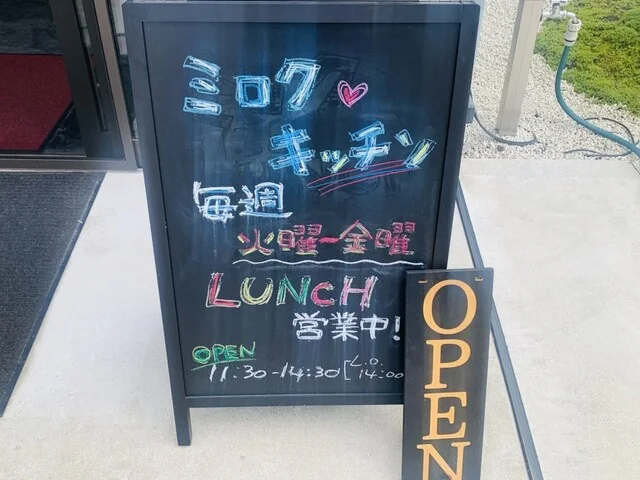 ミロク
キッチン
毎週
火曜~金曜
LUNCH
営業中!
OPEN
11:30-14:30 [L.O. 14:00
OPEN